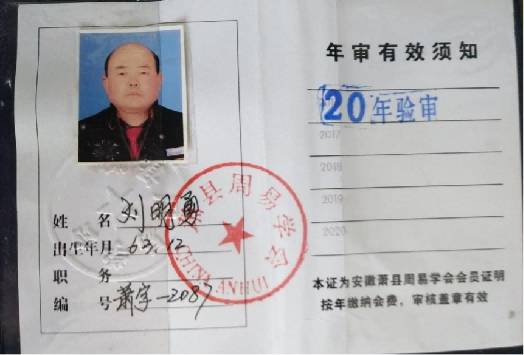 姓 名 刘明勇
出生年月 63.12
职 务
编 号 萧字-2087
萧县周易学会
CHINA ANHUI
年审有效须知
20年验审
2017
2018
2019
2020
本证为安徽萧县周易学会会员证明
按年缴纳会费，审核盖章有效